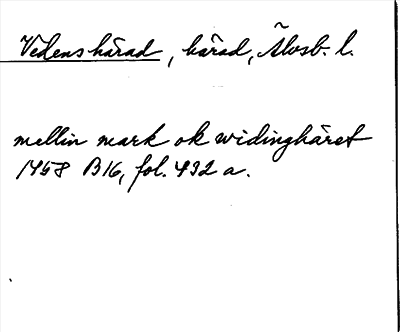 Vedens härad, härad, Älvsb. l.
mellin mark ok widinghäret
1458 B16, fol. 432 a.